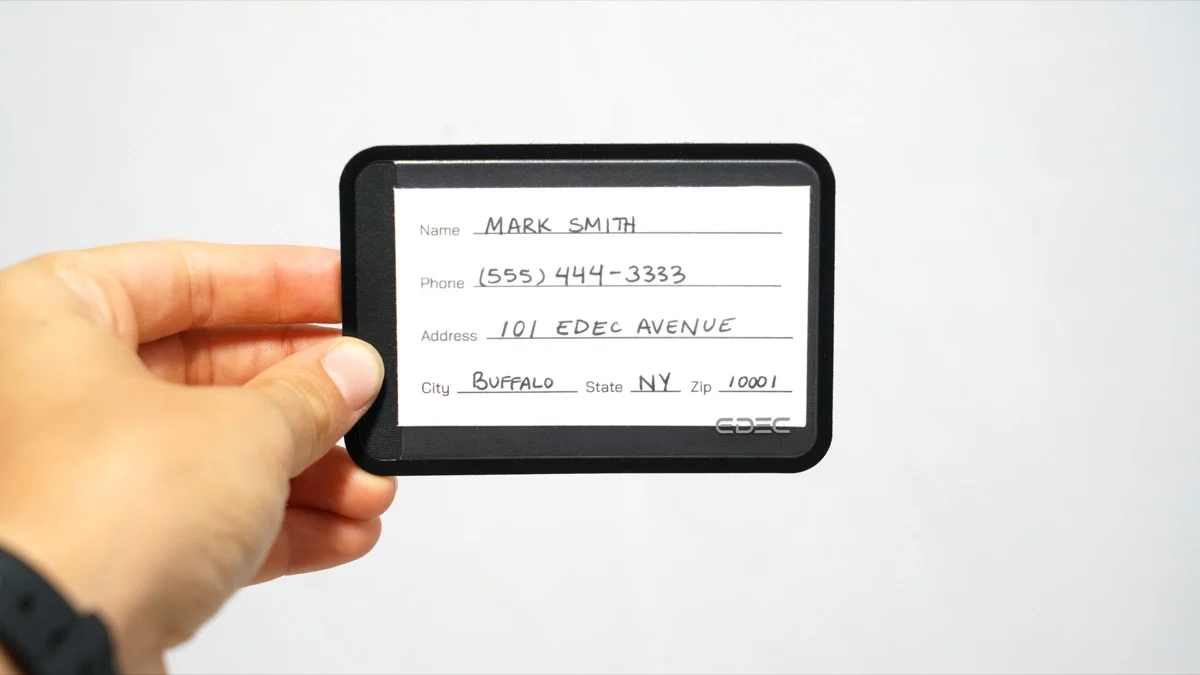 Name MARK SMITH
Phone (555) 444-3333
Address 101 EDEC AVENUE
City BUFFALO State NY Zip 10001
EDEC